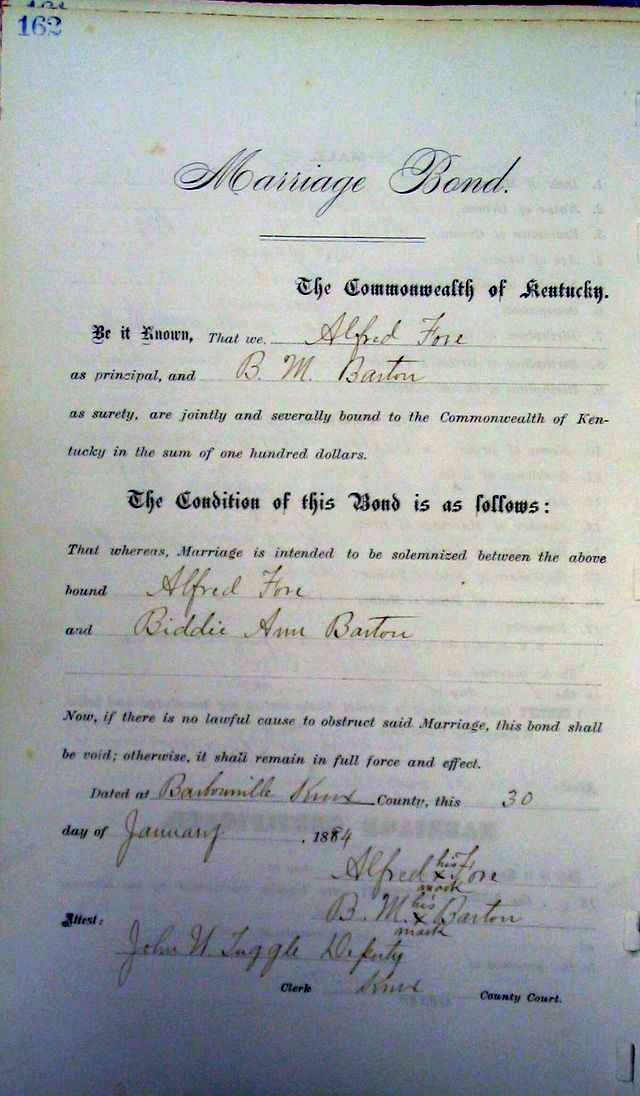 162
Marriage Bond.
The Commonwealth of Kentucky.
Be it Known, That we, Alfred Fore
as principal, and B. M. Barton
as surety, are jointly and severally bound to the Commonwealth of Ken-
tucky in the sum of one hundred dollars.
The Condition of this Bond is as follows:
That whereas, Marriage is intended to be solemnized between the above
bound Alfred Fore
and Biddie Ann Barton
Now, if there is no lawful cause to obstruct said Marriage, this bond shall
be void; otherwise, it shall remain in full force and effect.
Dated at Barbourville Knox County, this 30
day of January, 1884
Alfred his x mark Fore
B. M. his x mark Barton
Attest:
John W Tuggle Deputy
Clerk Knox County Court.